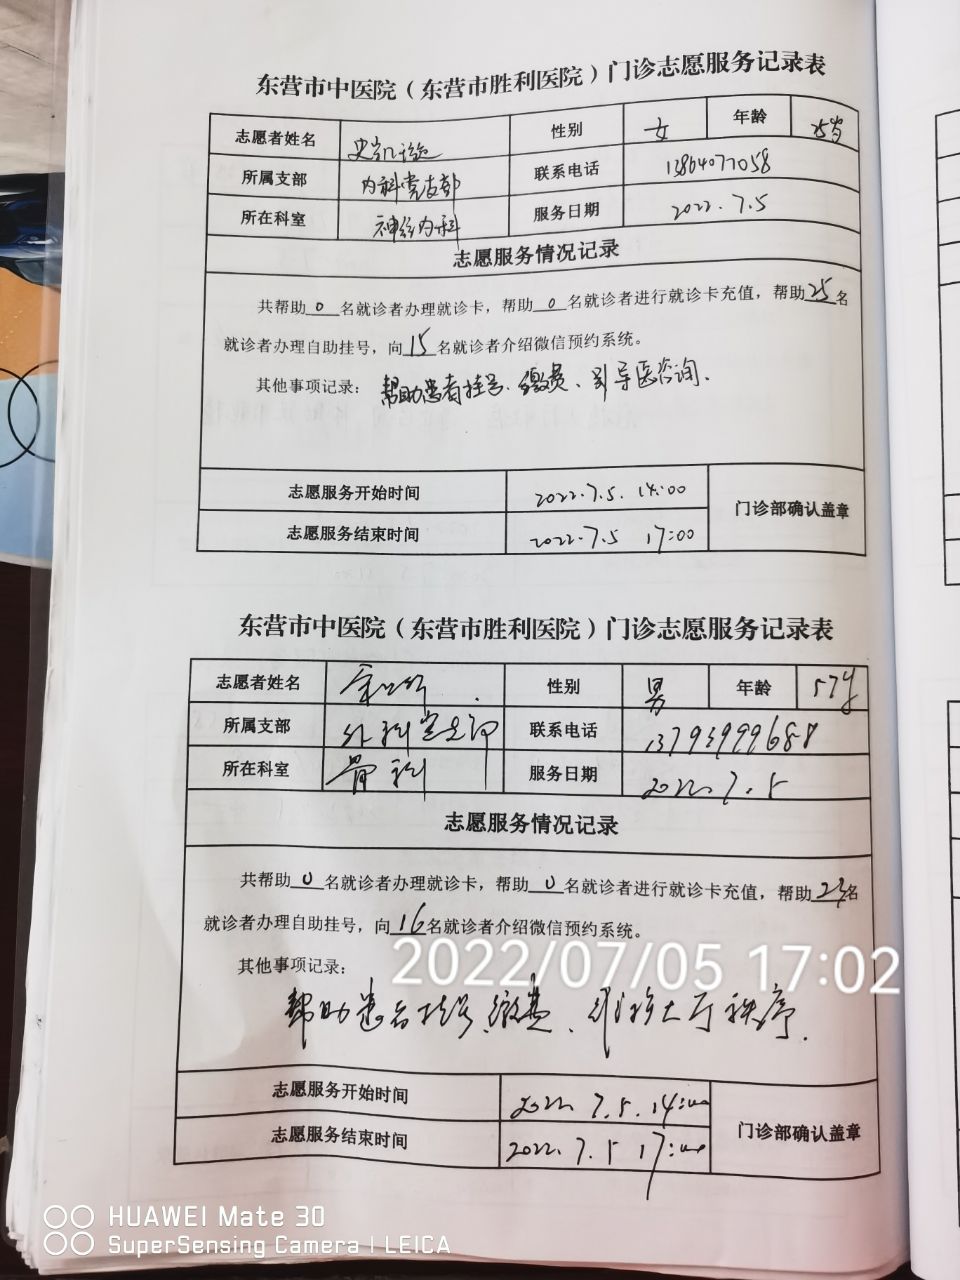 东营市中医院（东营市胜利医院）门诊志愿服务记录表
志愿者姓名 性别 女 年龄 25岁
所属支部 内科党支部 联系电话 13864077058
所在科室 神经内科 服务日期 2022.7.5
志愿服务情况记录
共帮助0名就诊者办理就诊卡，帮助0名就诊者进行就诊卡充值，帮助25名
就诊者办理自助挂号，向15名就诊者介绍微信预约系统。
其他事项记录：帮助患者挂号、缴费、引导医咨询.
志愿服务开始时间 2022.7.5. 14:00 门诊部确认盖章
志愿服务结束时间 2022.7.5 17:00
东营市中医院（东营市胜利医院）门诊志愿服务记录表
志愿者姓名 性别 男 年龄 57岁
所属支部 外科党支部 联系电话 13793999688
所在科室 骨科 服务日期 2022.7.5
志愿服务情况记录
共帮助0名就诊者办理就诊卡，帮助0名就诊者进行就诊卡充值，帮助23名
就诊者办理自助挂号，向16名就诊者介绍微信预约系统。
其他事项记录：
2022/07/05 17:02
帮助患者挂号、缴费、维持大厅秩序.
志愿服务开始时间 2022 7.5.14:00 门诊部确认盖章
志愿服务结束时间 2022.7.5 17:00
HUAWEI Mate 30
SuperSensing Camera | LEICA